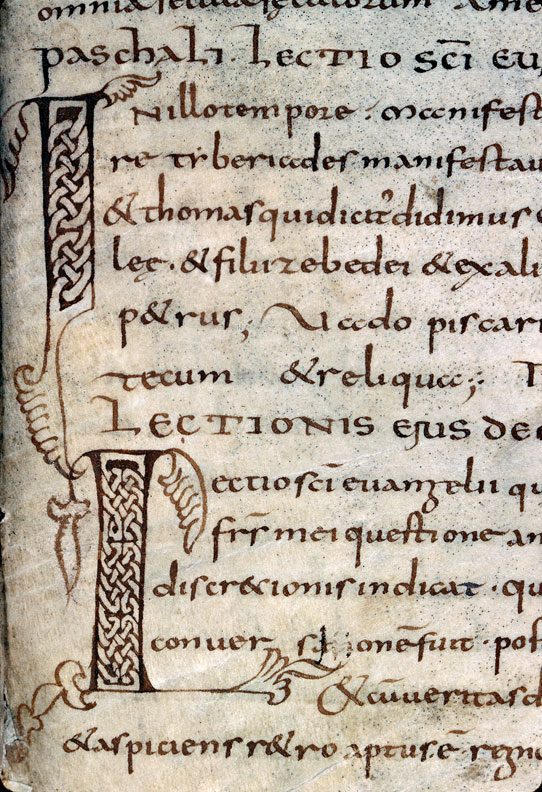 omnia secula seculorum ame
PASCHALI. LECTIO SCĪ EU
INillo tempore. manifest
re tyberiades manifestau
& thomas qui dicit᷒ didimus
leę. & filii zebedei & exali
p&rus, Uado piscari
tecum & reliqua;
LECTIONIS EJUS DE
Lectio scī euangelii qu
fr̄s mei questione an
discr&ionis indicat. qu
conuer sionē fuit. pos
& cū ueritas
& aspiciens r&ro aptus. ē regno